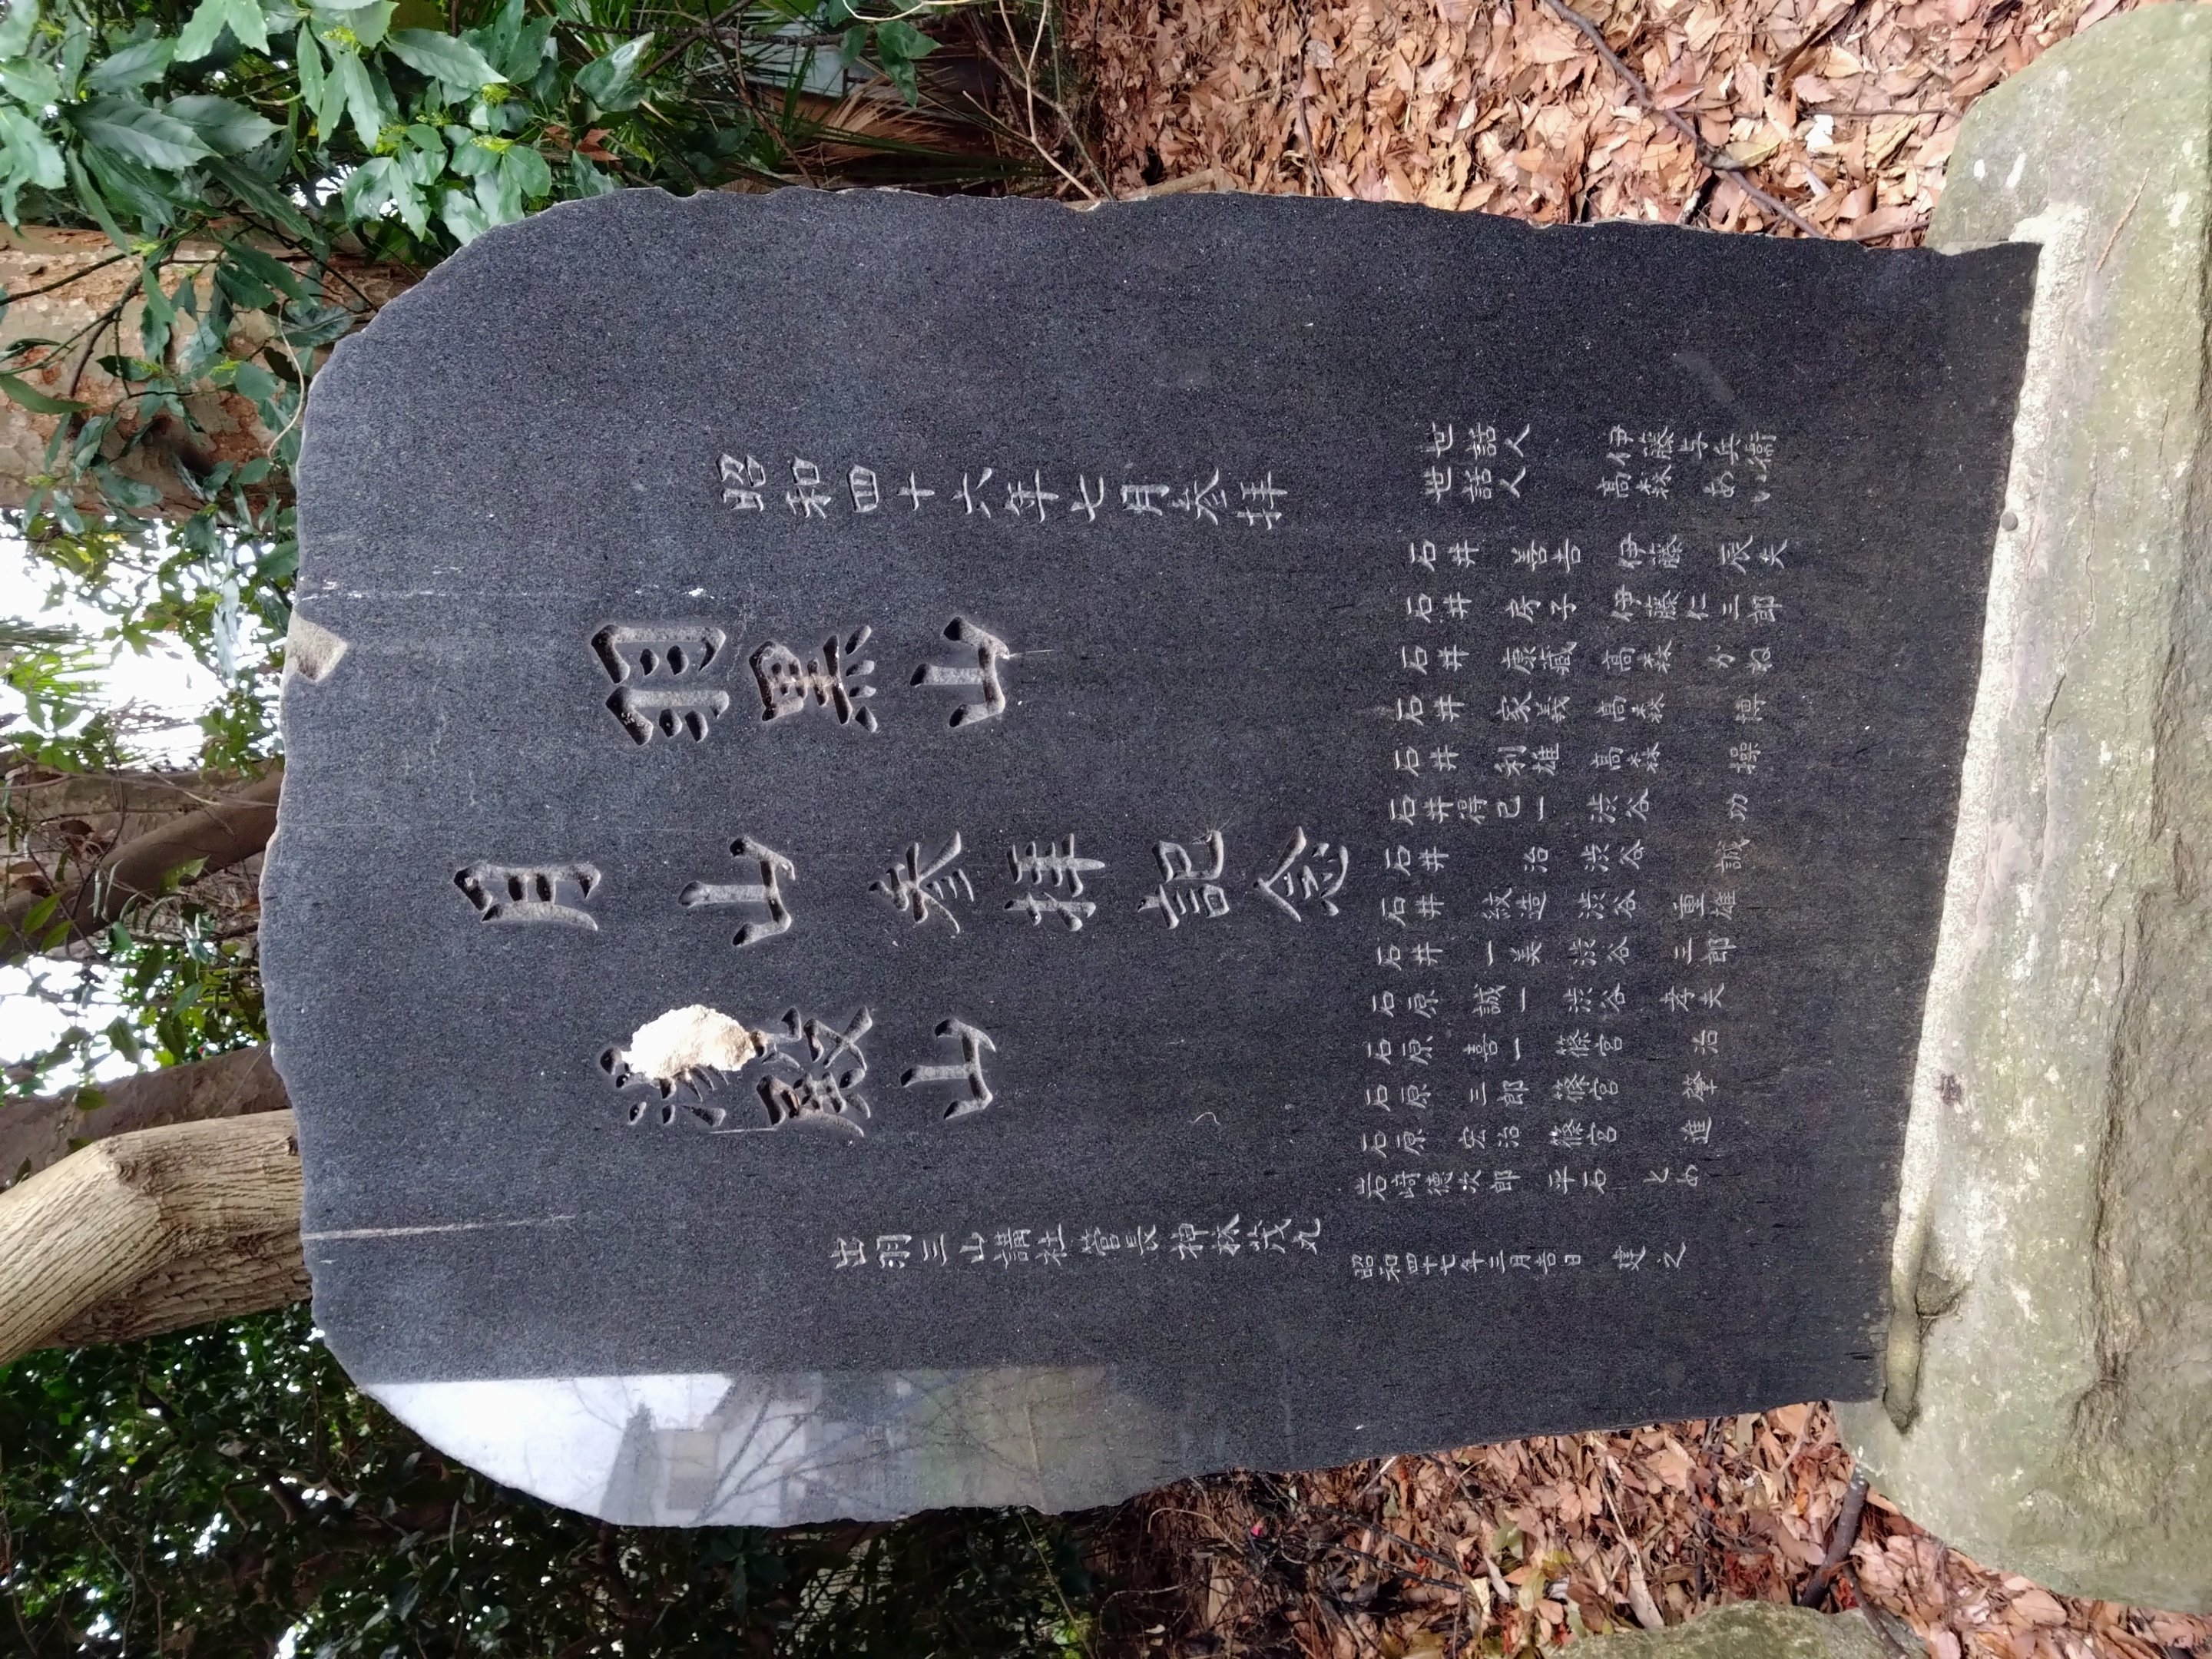 昭和四十六年七月参拝
羽黒山
月山参拝記念
湯殿山
出羽三山講社管長神林茂丸
世話人 伊藤与兵衛
世話人 高森あい
石井善吉 伊藤辰夫
石井房子 伊藤仁三郎
石井康蔵 高森かね
石井家義 高森博
石井利雄 高森操
石井得己一 渋谷功
石井治 渋谷誠
石井紋造 渋谷重雄
石井一美 渋谷三郎
石原誠一 渋谷孝夫
石原喜一 篠宮治
石原三郎 篠宮肇
石原宏治 篠宮進
岩崎徳次郎 平石とめ
昭和四十七年三月吉日 建之